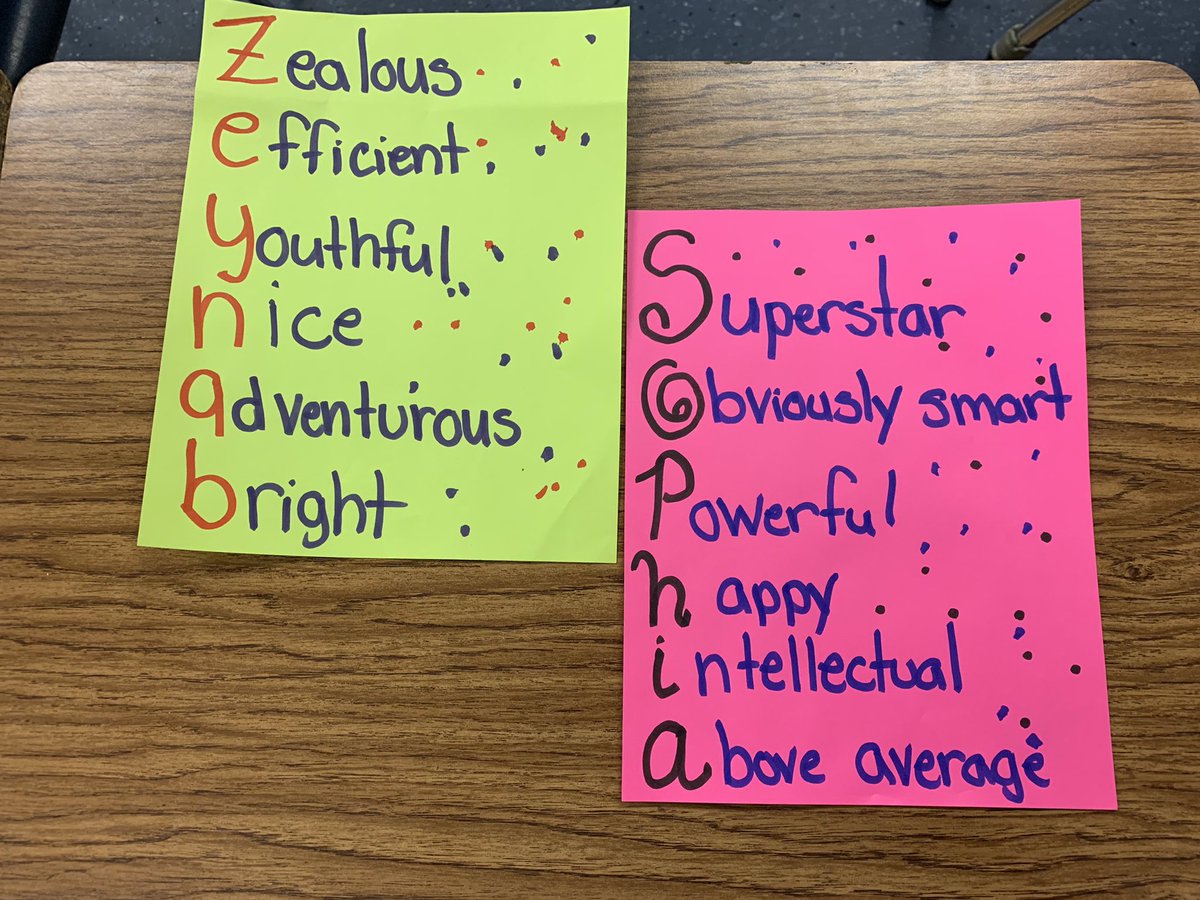 Zealous
efficient
youthful
nice
adventurous
bright
Superstar
Obviously smart
Powerful
happy
intellectual
above average